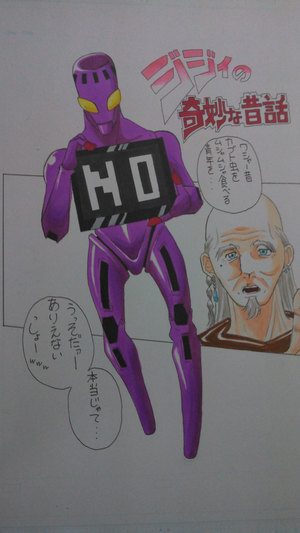 ジジィの
奇妙な昔話
ワシャー昔
カブト虫を
ムシャムシャ食べる
青年を・・・
NO
うっそだァー
ありえない
っしょーwww
本当じゃて・・・